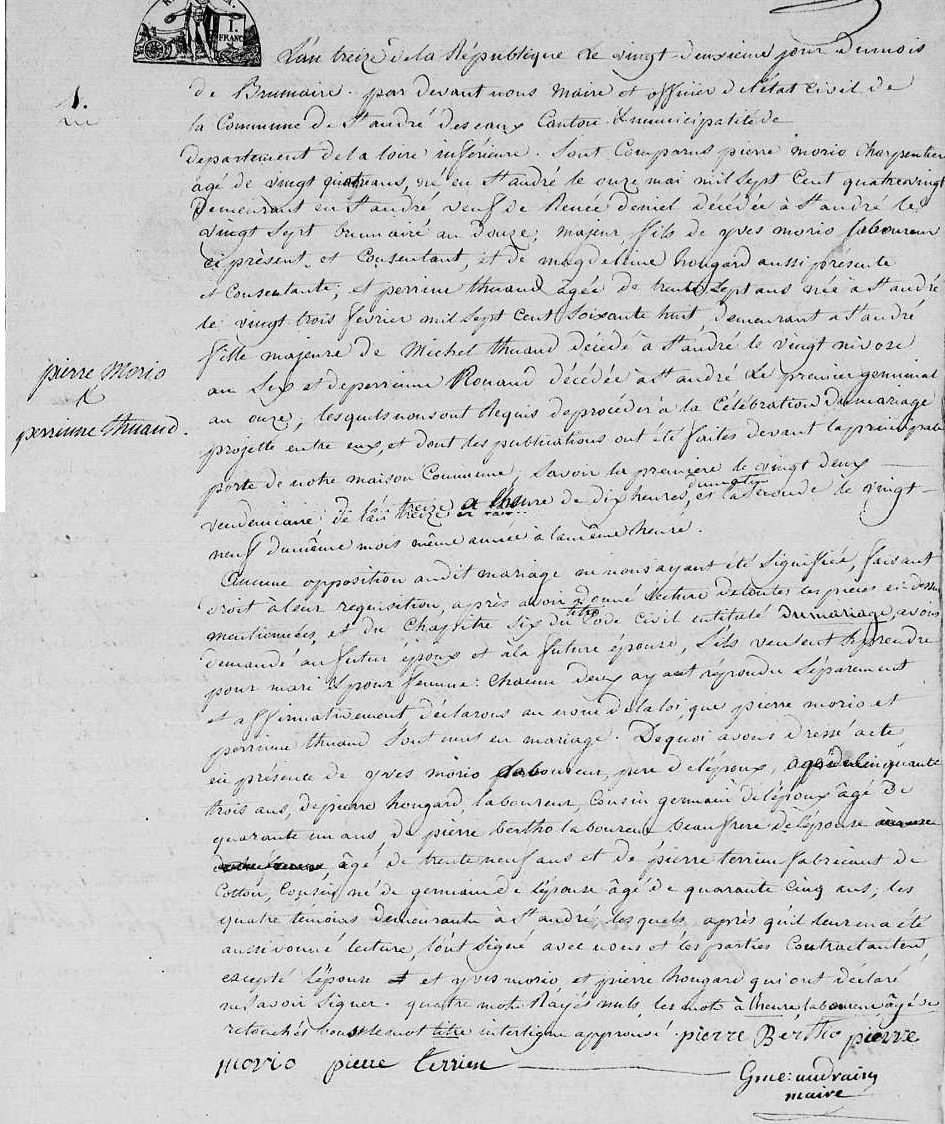 1. FRANC
L'an treize de la République le vingt-deuxieme jour du mois
1.
de Brumaire. par devant nous maire et officier de l'état civil de
la Commune de St andré des eaux Canton & municipalité de
departement de la loire inférieure. Sont Comparus pierre morio charpentier
agé de vingt quatre ans, né en St andré le onze mai mil Sept Cent quatrevingt
Demeurant en St andré veuf de Renée deniel décédée à St andré le
vingt Sept brumaire an Douze; majeur, fils de yves morio laboureur
ci présent, et Consentant, et de magdeleine hougard aussi présente
et Consentante; et perrine thuaud âgée de trente Sept ans née a St andré
le vingt trois février mil Sept Cent Soixante huit, demeurant a St andré
fille majeure de Michel thuaud décédé à St andré le vingt nivose
pierre Morio
&
perrinne thuaud.
an Six et de perrinne Rouaud décédée a St andré Le premier germinal
an onze; lesquels nous ont Requis de procéder a la Célébration Du mariage
projetté entre eux, et dont les publications ont été faites devant la principale
porte de notre maison Commune; Savoir la première le vingt deux
vendemiaire de l'an treize a l'heure de dix heures du matin, et la Seconde le vingt
neuf du même mois même année à la même heure.
Aucune opposition audit mariage ne nous ayant été Signifiée, faisant
droit à leur requisition, après avoir donné Lecture de toutes les pièces ci-dessus
mentionnées, et du Chapitre Six du titre Code Civil entitulé Du mariage, avons
demandé au futur époux et à la future épouse, S'ils veulent Se prendre
pour mari & pour femme: chacun deux ayant répondu Séparement
et affirmativement, déclarons au nom de la loi, que pierre morio et
perrinne thuaud Sont unis en mariage. De quoi avons dressé acte
en présence de yves morio laboureur, pere de l'époux, agé de Cinquante
trois ans, de pierre hougard, laboureur, Cousin germain de l'époux âgé de
quarante un ans de pierre bertho laboureur beaufrere de l'épouse
âgé de trente neuf ans et de pierre terrien fabricant de
Cotton, Cousin né de germain de l'épouse âgé de quarante Cinq ans, les
quatre témoins demeurants à St andré; lesquels, après qu'il leur en a été
aussi donné lecture, l'ont Signé avec nous et les parties Contractantes,
excepté l'épouse et yves morio, et pierre hougard qui ont déclaré
ne Savoir Signer. quatre mots Rayés nuls, les mots à l'heure, laboureur, âgé de
retouchés bons le mot titre interligne approuvé. pierre Bertho pierre
morio pierre terrien
Gme: audrain
maire